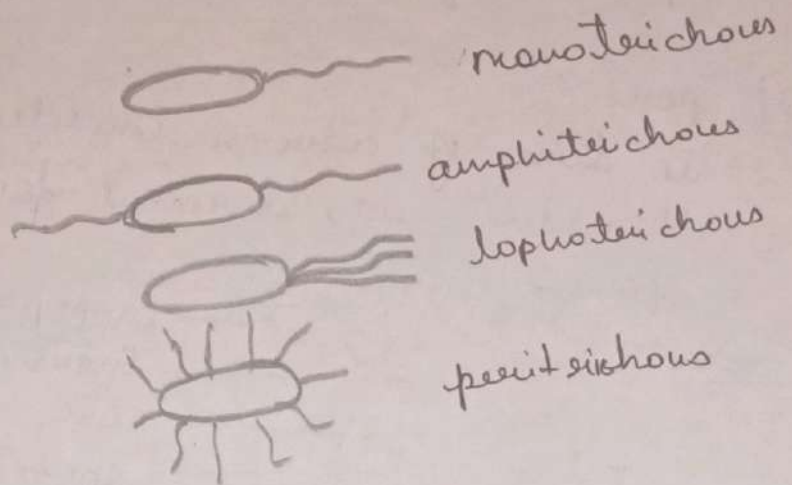 monotrichous
amphitrichous
lophotrichous
peritrichous